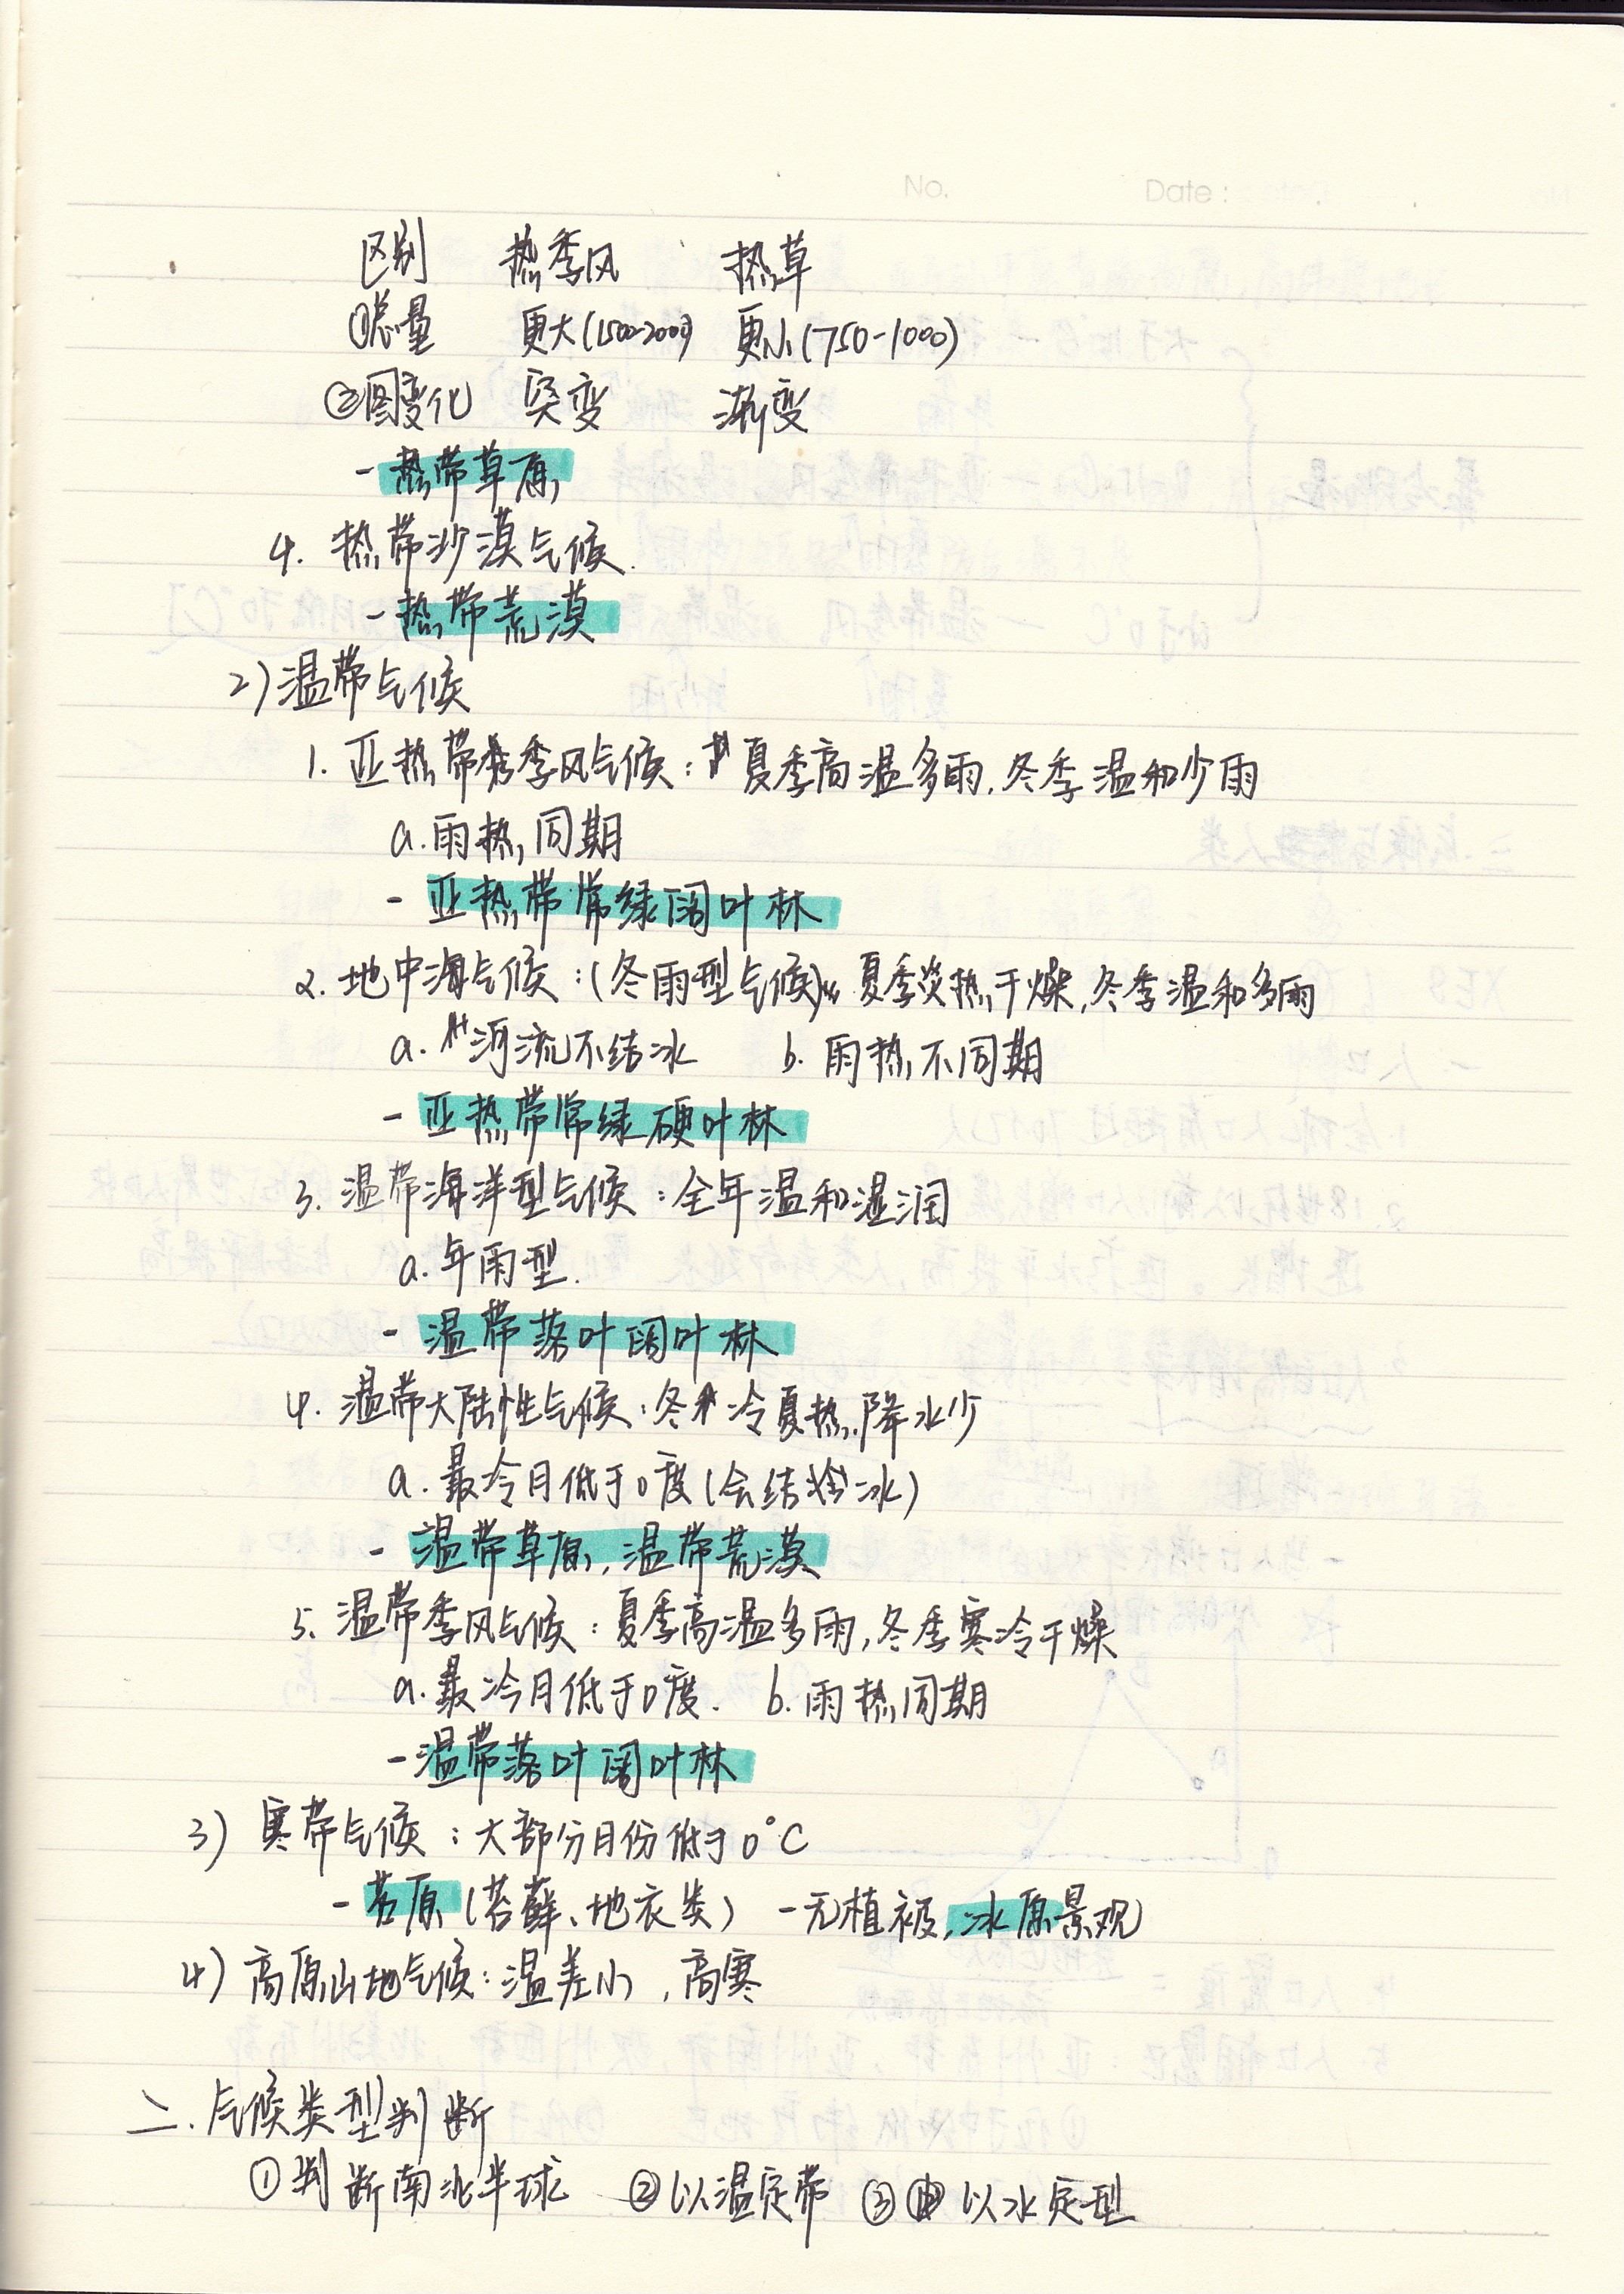 No.    Date:
区别 热季风 热草
①总量 更大(1500-2000) 更小(750-1000)
②图变化 突变 渐变
- 热带草原
4. 热带沙漠气候.
- 热带荒漠
2)温带气候
1. 亚热带季风气候: 夏季高温多雨,冬季温和少雨
a.雨热同期
- 亚热带常绿阔叶林
2. 地中海气候:(冬雨型气候) 夏季炎热干燥,冬季温和多雨
a. 河流不结冰 b. 雨热不同期
- 亚热带常绿硬叶林
3. 温带海洋型气候:全年温和湿润
a.年雨型.
- 温带落叶阔叶林
4. 温带大陆性气候:冬冷夏热,降水少
a. 最冷月低于0度(会结冰)
- 温带草原,温带荒漠
5. 温带季风气候:夏季高温多雨,冬季寒冷干燥
a.最冷月低于0度. b.雨热同期
-温带落叶阔叶林
3) 寒带气候:大部分月份低于0°C
-苔原(苔藓、地衣类) -无植被,冰原景观
4) 高原山地气候:温差小,高寒
二.气候类型判断
①判断南北半球 ②以温定带 ③以水定型